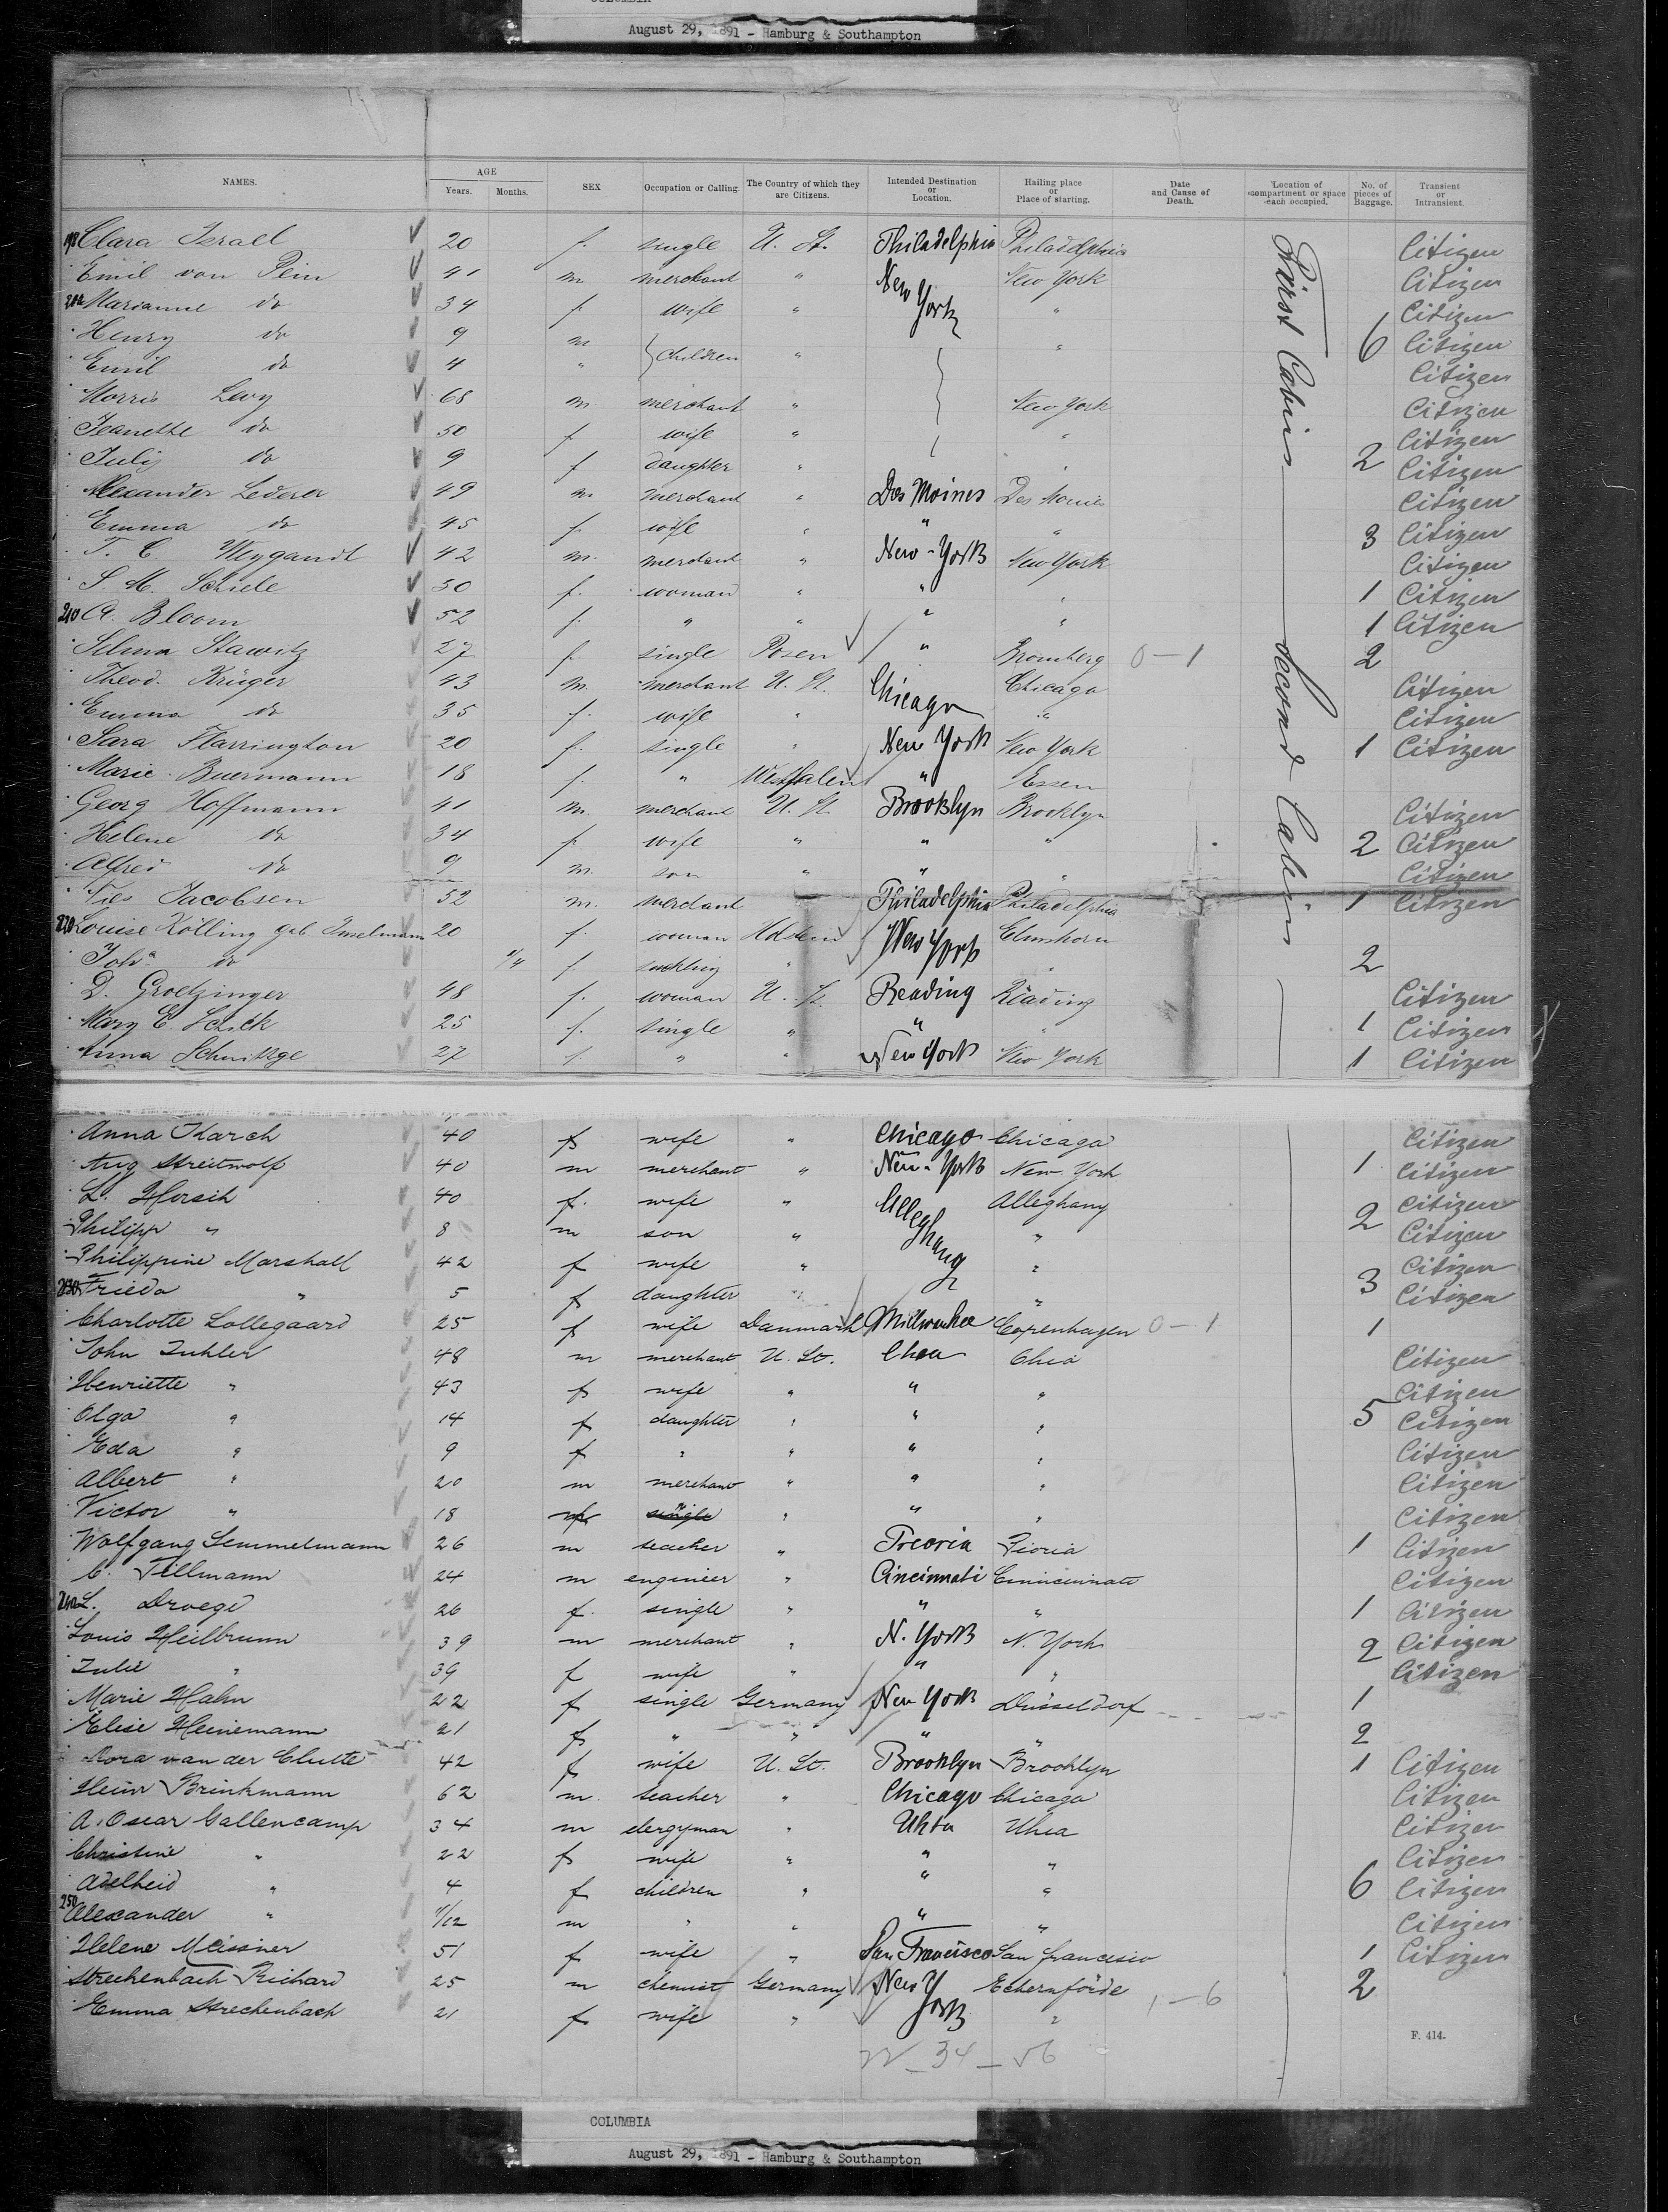 COLUMBIA
August 29, 1891 - Hamburg & Southampton
NAMES. AGE Years. Months. SEX Occupation or Calling. The Country of which they are Citizens. Intended Destination or Location. Hailing place or Place of starting. Date and Cause of Death. Location of compartment or space each occupied. No. of pieces of Baggage. Transient or Intransient.
Clara Israel 20 f. single U. St. Philadelphia Philadelphia Citizen
Emil von Pein 41 m merchant " New York New York Citizen
Marianne do 34 f. wife " " Citizen
Henry do 9 m children " " 6 Citizen
Emil do 4 " Citizen
Morris Levy 68 m merchant " New York Citizen
Jeanette do 50 f wife " " Citizen
July do 9 f daughter " " 2 Citizen
Alexander Lederer 49 m merchant " Des Moines Des Moines Citizen
Emma do 45 f. wife " " " 3 Citizen
T. C. Weygandt 42 m. merchant " New-York New York Citizen
S. M. Schiele 30 f. woman " " " 1 Citizen
210 A. Bloom 52 f. " " " " 1 Citizen
Selma Stawitz 27 f single Posen " Bromberg 0-1 2
Theod. Krüger 43 m. merchant U. St. Chicago Chicago Citizen
Emma do 35 f. wife " " Citizen
Sara Harrington 20 f. single " New York New York 1 Citizen
Marie Buermann 18 f. " Westfalen " Essen
Georg Hoffmann 41 m. merchant U. St. Brooklyn Brooklyn Citizen
Helene do 34 f wife " " " 2 Citizen
Alfred do 9 m. son " " " Citizen
Ties Jacobsen 52 m. merchant Philadelphia Philadelphia 1 Citizen
Louise Kölling geb. Inselmann 20 f. woman Holstein New York Elmshorn
Joha do f suckling " " 2
D. Groetzinger 48 f. woman U. St. Reading Reading Citizen
Mary C. Schick 25 f. single " " " 1 Citizen
Anna 27 f " " New York New York 1 Citizen
First Cabin
Second Cabin
Anna Karch 40 f wife " Chicago Chicago Citizen
Aug Streitwolf 40 m merchant " New-York New York 1 Citizen
L. Hirsch 40 f. wife " Alleghany Alleghany Citizen
Philipp " 8 m son " " 2 Citizen
Philippine Marshall 42 f wife " " Citizen
Frieda " 5 f daughter " " 3 Citizen
Charlotte Lollegaard 25 f wife Danmark Milwaukee Copenhagen 0-1 1
John Zuhler 48 m merchant U. St. Citizen
Henriette " 43 f wife " " " Citizen
Olga " 14 f daughter " " " 5 Citizen
Eda " 9 f " " " " Citizen
Albert " 20 m merchant " " " Citizen
Victor " 18 m " " " " Citizen
Wolfgang Semmelmann 26 m teacher " Peoria Pioria 1 Citizen
C. Tillmann 24 m engineer " Cincinnati Citizen
240 L. Droege 26 f. single " " " 1 Citizen
Louis Heilbrunn 39 m merchant " N. York N. York 2 Citizen
Julie " 39 f wife " " " Citizen
Marie Hahn 22 f single Germany New York Düsseldorf 1
Elise Heinemann 21 f " " " " 2
Dora van der Clutte 42 f wife U. St. Brooklyn Brooklyn 1 Citizen
Heinr Brinkmann 62 m. teacher " Chicago Chicago Citizen
A. Oscar Gallencamp 34 m clergyman " Citizen
Christine " 22 f wife " " " Citizen
Adelheid " 4 f children " " " 6 Citizen
250 Alexander " 11/12 m " " " " Citizen
Helene Meissner 51 f wife " San Francisco San Francisco 1 Citizen
Streckenbach Richard 25 m chemist Germany New York Eckernförde 1-6 2
Emma Streckenbach 21 f wife " "
F. 414.
COLUMBIA
August 29, 1891 - Hamburg & Southampton